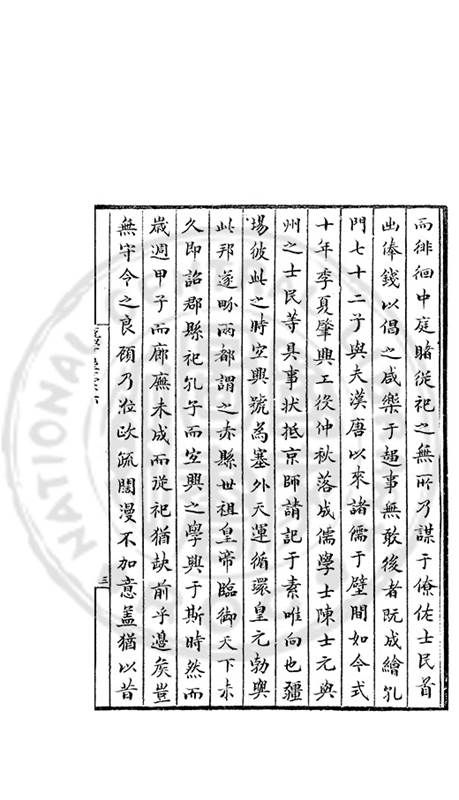 而徘徊中庭睹從祀之無所乃謀于僚佐士民首
出俸錢以倡之咸樂于趨事無敢後者既成繪孔
門七十二子與夫漢唐以來諸儒于壁間如令式
十年季夏肇興工役仲秋落成儒學士陳士元與
州之士民等具事狀抵京師請記于素唯向也疆
場彼此之時宜興號為塞外天運循環皇元勃興
此邦遂畍兩都謂之赤縣世祖皇帝臨御天下未
久即詔郡縣祀孔子而宜興之學興于斯時然而
歲週甲子而廊廡未成而從祀猶缺前乎邊矣豈
無守令之良顧乃涖政疏闊漫不加意盖猶以昔
三
NATIONAL